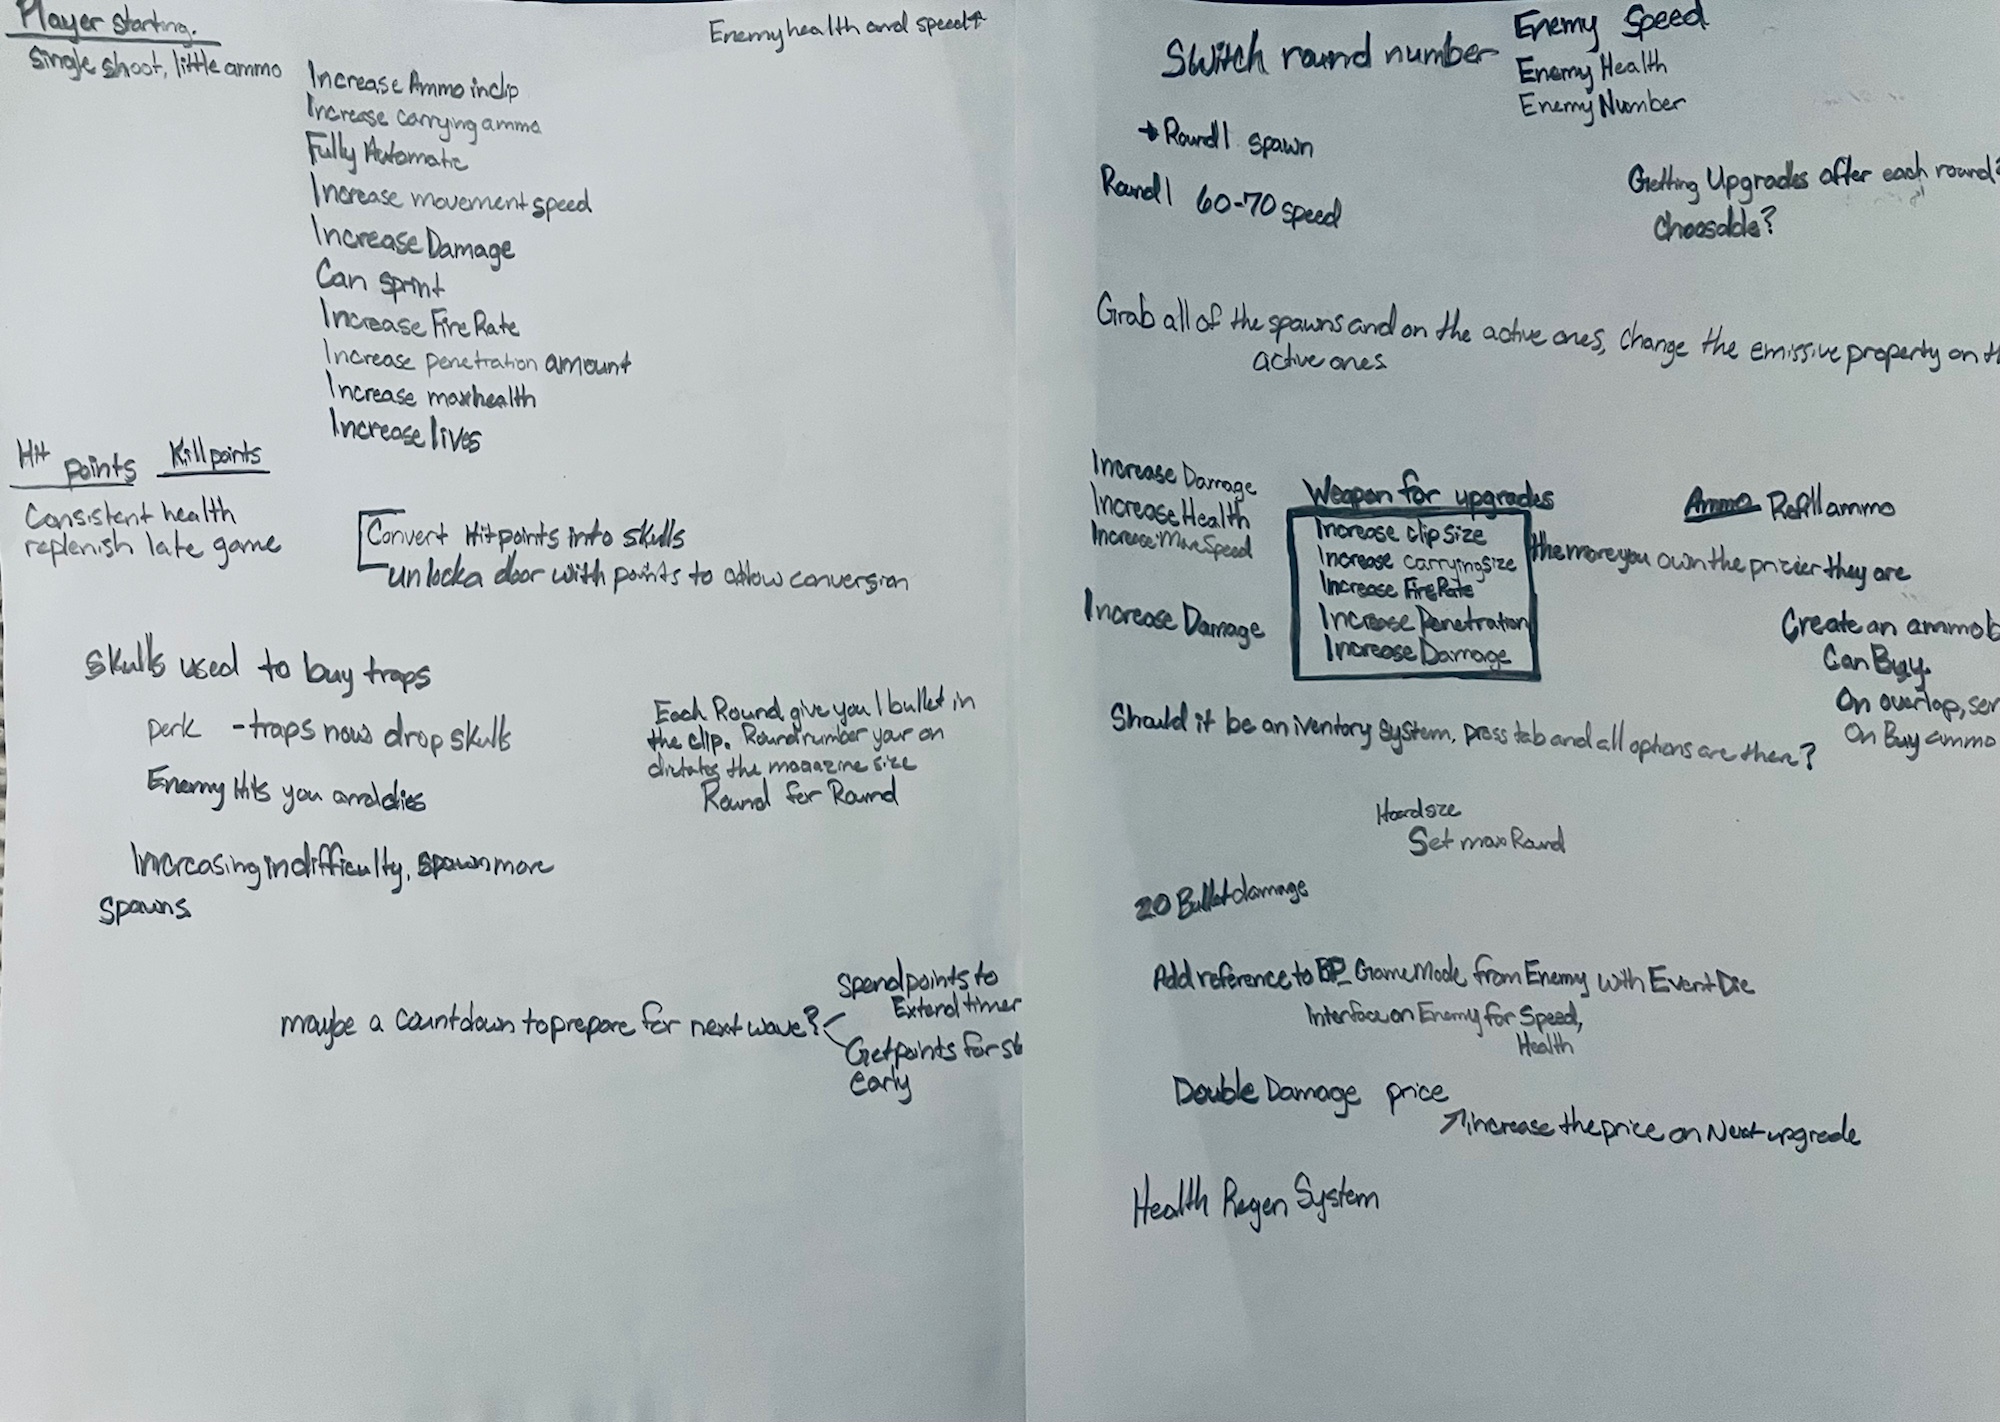 Player starting.
Single shoot, little ammo
Enemy health and speed↑
Increase Ammo in clip
Increase carrying ammo
Fully Automatic
Increase movement speed
Increase Damage
Can sprint
Increase Fire Rate
Increase penetration amount
Increase max health
Increase lives
Hit points
Kill points
Consistent health
replenish late game
Convert Hit points into skulls
unlock a door with points to allow conversion
Skulls used to buy traps
perk - traps now drop skulls
Enemy Hits you and dies
Increasing in difficulty, spawn more
spawns
Each Round give you 1 bullet in
the clip. Round number your on
dictates the magazine size
Round for Round
maybe a countdown to prepare for next wave?
Spend points to
Extend timer
Get points for
early
Switch round number
Enemy Speed
Enemy Health
Enemy Number
→ Round 1 spawn
Round 1 60-70 speed
Getting Upgrades after each round?
Choosable?
Grab all of the spawns and on the active ones, change the emissive property on
active ones
Increase Damage
Increase Health
Increase Move Speed
Increase Damage
Weapon for upgrades
Increase clip size
Increase carrying size
Increase Fire Rate
Increase Penetration
Increase Damage
Ammo Refill ammo
the more you own the pricier they are
Create an ammo
Can Buy.
On overlap,
On Buy ammo
Should it be an iventory system, press tab and all options are there?
Hoard size
Set max Round
20 Bullet damage
Add reference to BP_GameMode from Enemy with Event Die
Interface on Enemy for Speed,
Health
Double Damage price
↗ increase the price on Next upgrade
Health Regen System